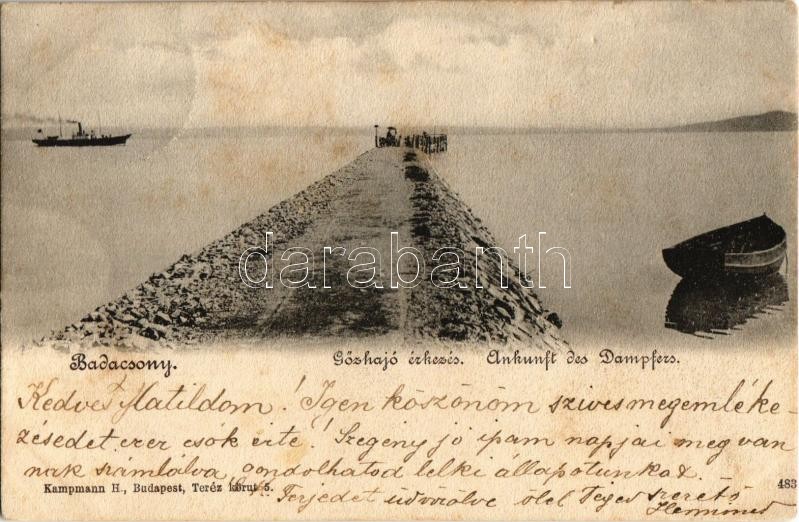 darabanth.com
Badacsony.
Gőzhajó érkezés. Ankunft des Dampfers.
Kedves Matildom! Igen köszönöm szives megemléke-
zésedet ezer csók érte! Szegény jó ipam napjai meg van
nak számlálva, gondolhatod lelki állapotunkat.
Kampmann H., Budapest, Teréz körut 5.
483
Férjedet üdvözölve ölel Téged szerető